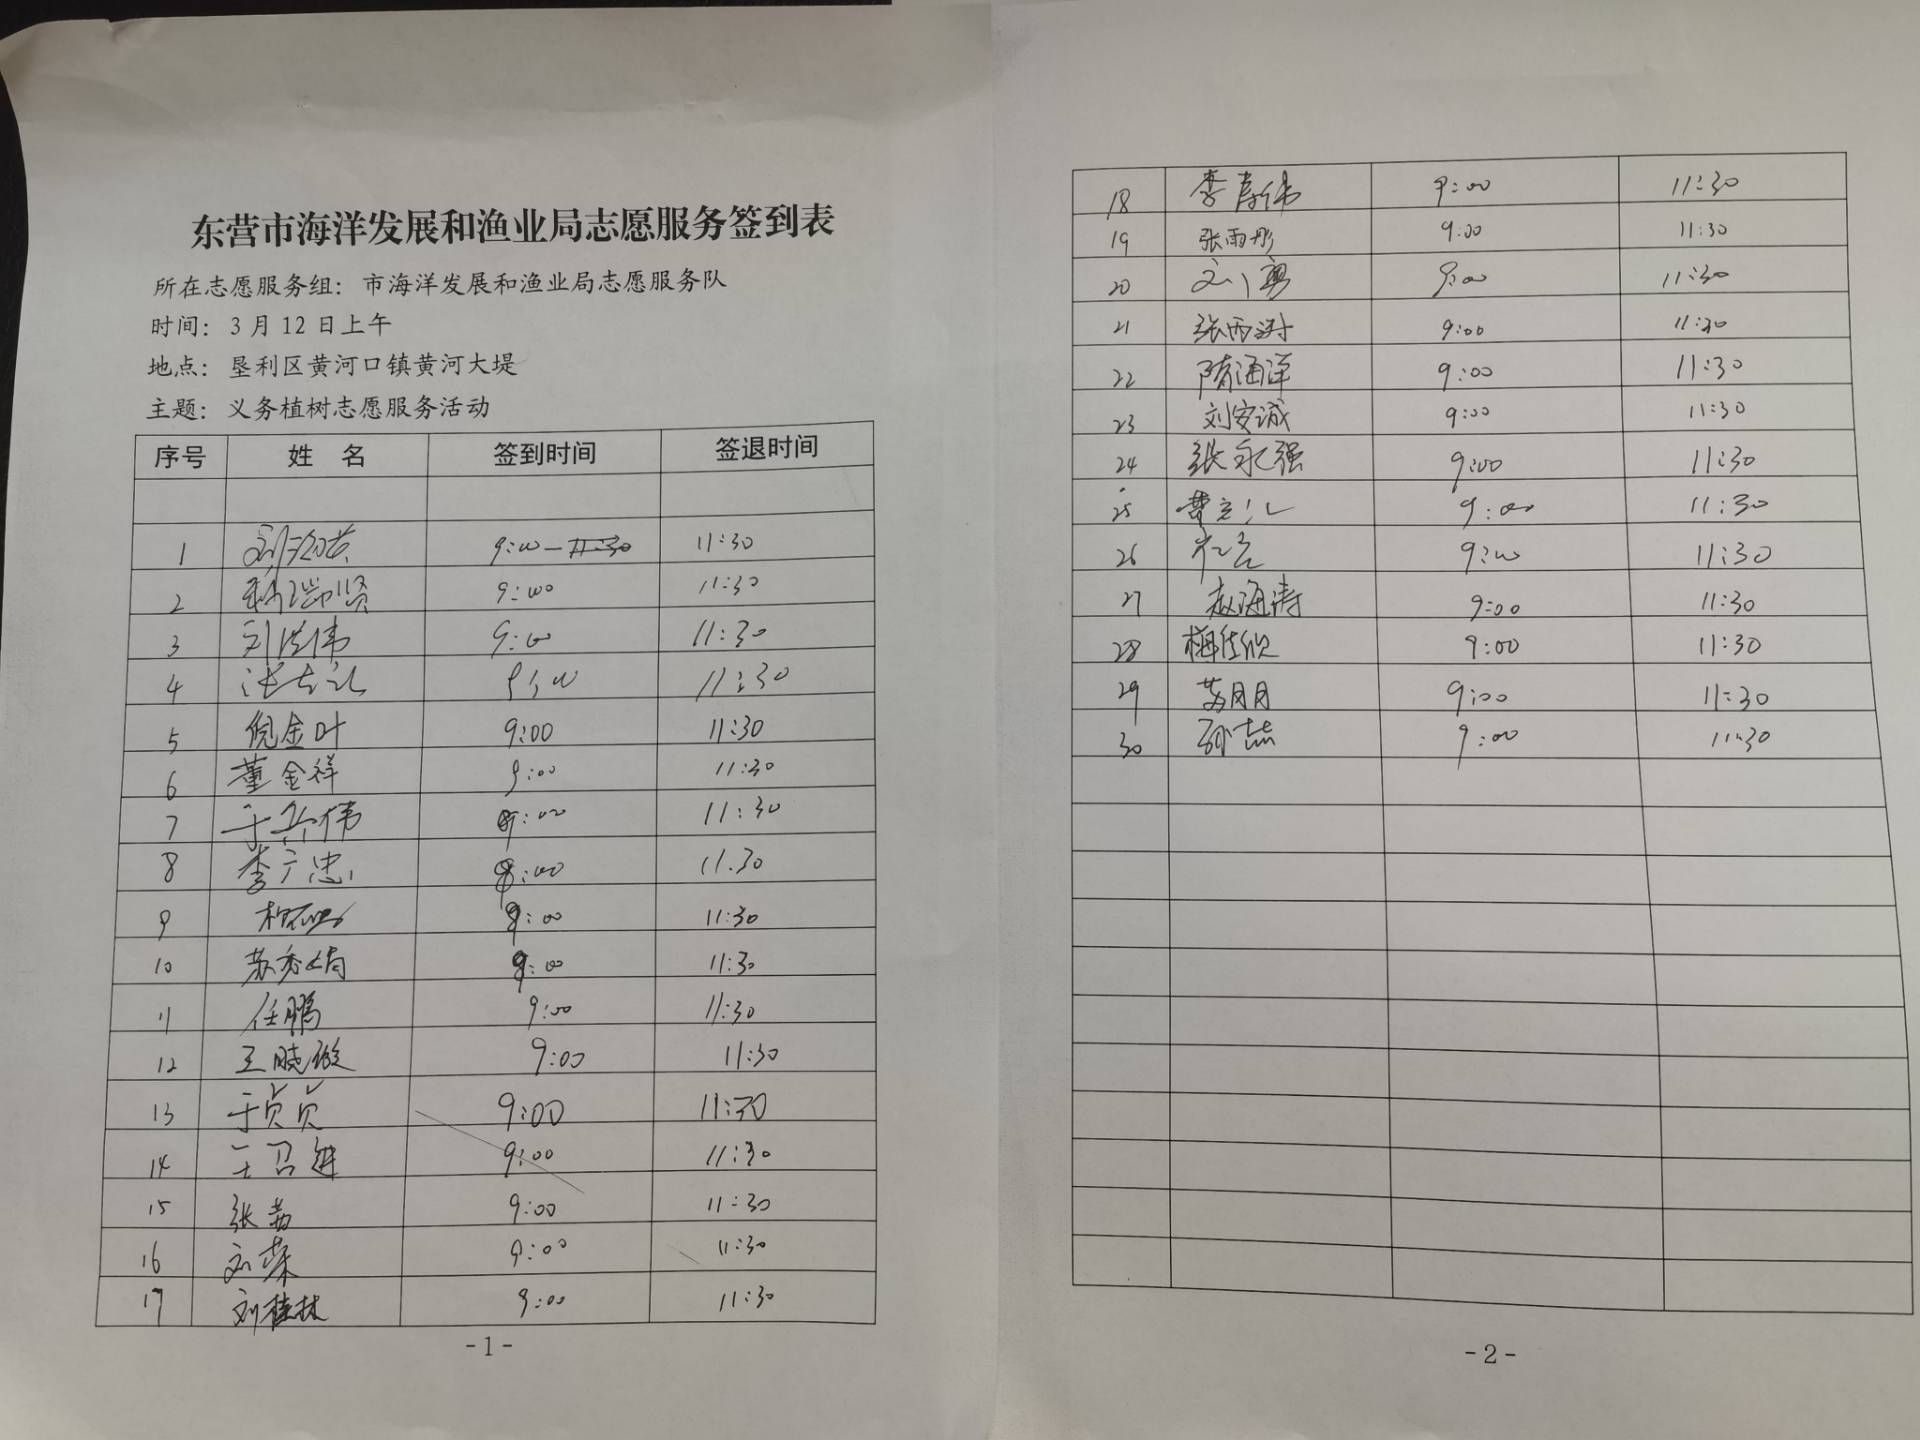 东营市海洋发展和渔业局志愿服务签到表
所在志愿服务组：市海洋发展和渔业局志愿服务队
时间：3月12日上午
地点：垦利区黄河口镇黄河大堤
主题：义务植树志愿服务活动
序号 姓 名 签到时间 签退时间
1 9:00 11:30
2 9:00 11:30
3 刘洪伟 9:00 11:30
4 9:00 11:30
5 倪金叶 9:00 11:30
6 董金祥 9:00 11:30
7 于兵伟 9:00 11:30
8 李广忠 9:00 11.30
9 9:00 11:30
10 苏秀娟 9:00 11:30
11 任鹏 9:00 11:30
12 王晓璇 9:00 11:30
13 于贞贞 9:00 11:30
14 王召进 9:00 11:30
15 张茜 9:00 11:30
16 刘荣 9:00 11:30
17 刘桂林 9:00 11:30
-1-
18 李春伟 9:00 11:30
19 张雨彤 9:00 11:30
20 刘勇 9:00 11:30
21 9:00 11:30
22 隋海洋 9:00 11:30
23 刘安诚 9:00 11:30
24 张永强 9:00 11:30
25 9:00 11:30
26 9:00 11:30
27 赵海涛 9:00 11:30
28 梅佳欣 9:00 11:30
29 苏月月 9:00 11:30
30 孙喆 9:00 11:30
-2-